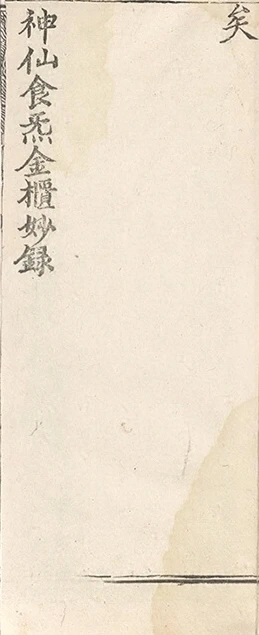 矣
神仙食炁金櫃妙録